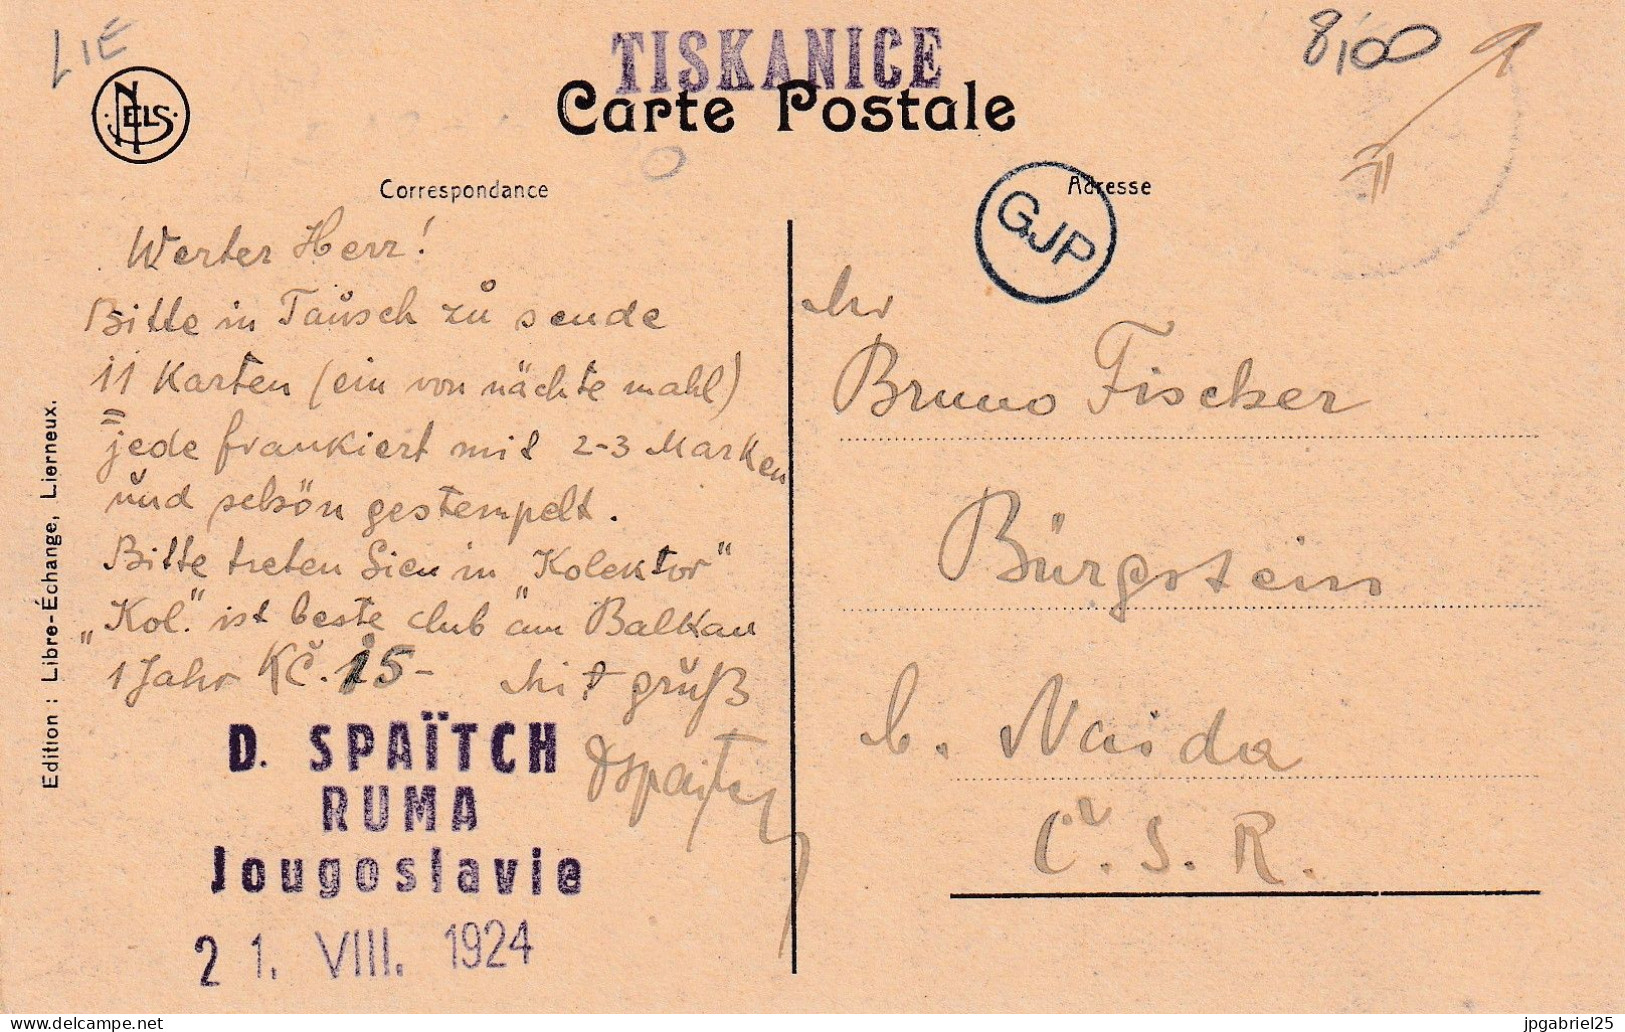 LIE
NELS
TISKANICE
8,00
Carte Postale
Correspondance
Adresse
GJP
Werter Herr!
Bitte in Taŭsch zŭ sende
11 Karten (ein von nächte mahl)
jede frankiert mit 2-3 Marken
ŭnd schön gestempelt.
Bitte treten Sien in "Kolektor"
"Kol." ist beste club am Balkan
1 Jahr KČ. 15- Mit grŭß
D. SPAÏTCH
RUMA
Jougoslavie
21. VIII. 1924
Dspaitch
Edition : Libre-Échange, Lierneux.
Hr
Bruno Fischer
Bürgstein
b. Naida
Č.S.R.
delcampe.net
jpgabriel25